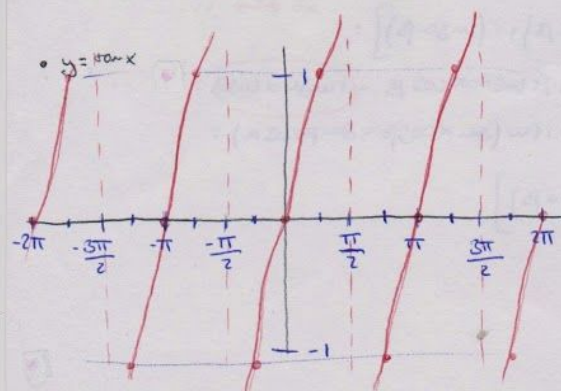 y = tan x
1
-2π -3π/2 -π -π/2 π/2 π 3π/2 2π
-1